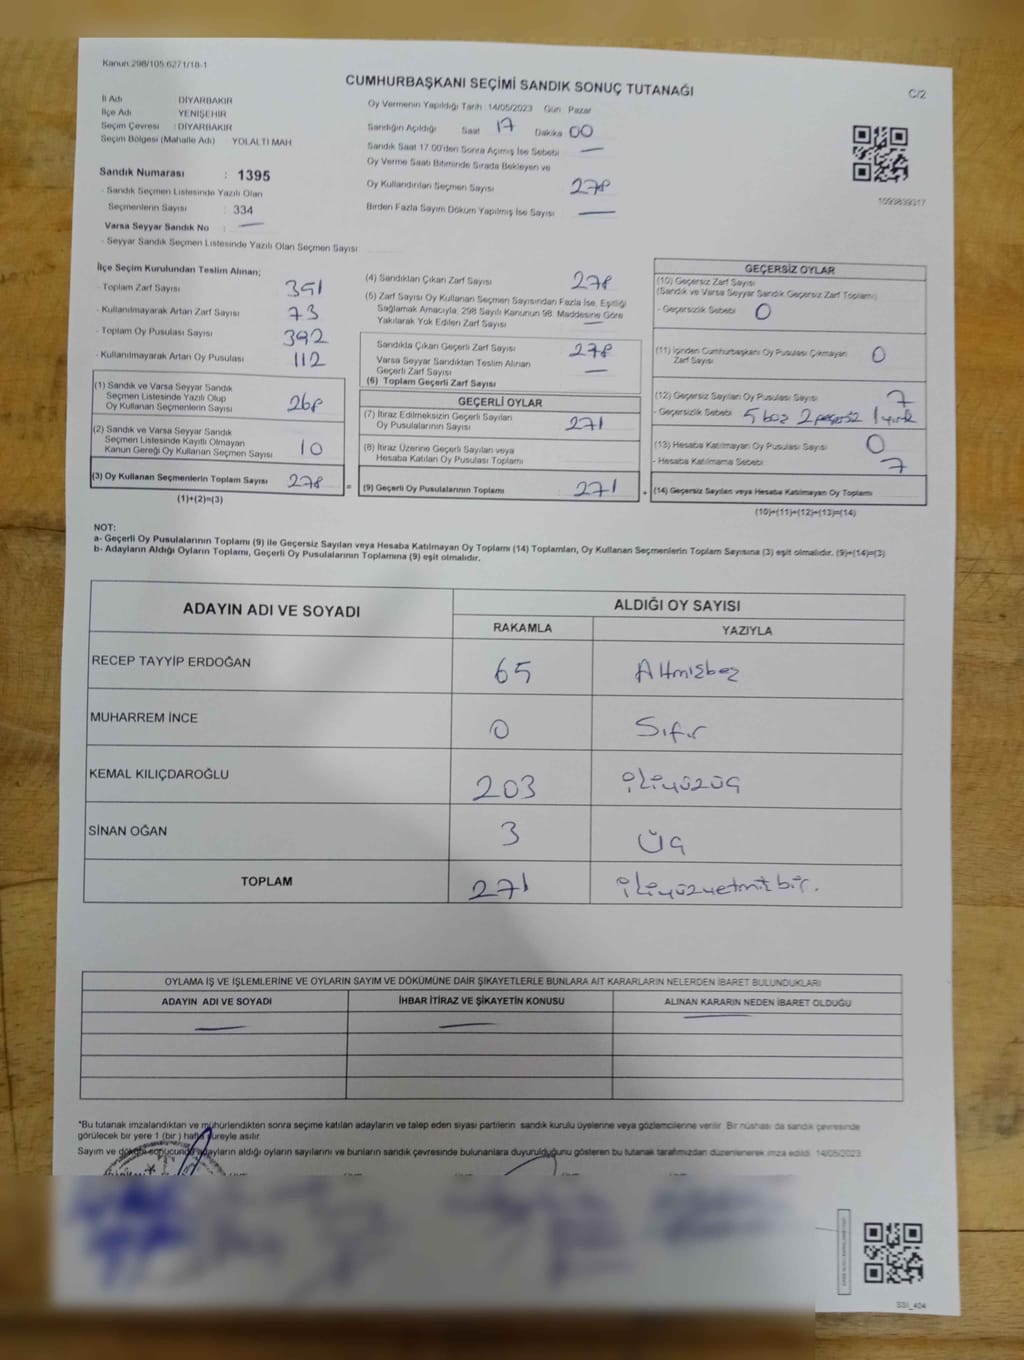 Kanun:298/105;6271/18-1
CUMHURBAŞKANI SEÇİMİ SANDIK SONUÇ TUTANAĞI
C/2
İl Adı DİYARBAKIR
İlçe Adı YENİŞEHİR
Seçim Çevresi : DİYARBAKIR
Seçim Bölgesi (Mahalle Adı) YOLALTI MAH
Sandık Numarası : 1395
- Sandık Seçmen Listesinde Yazılı Olan
Seçmenlerin Sayısı : 334
Varsa Seyyar Sandık No : —
- Seyyar Sandık Seçmen Listesinde Yazılı Olan Seçmen Sayısı
Oy Vermenin Yapıldığı Tarih : 14/05/2023 Gün : Pazar
Sandığın Açıldığı Saat 17 Dakika 00
Sandık Saat 17:00'den Sonra Açılmış İse Sebebi —
Oy Verme Saati Bitiminde Sırada Bekleyen ve
Oy Kullandırılan Seçmen Sayısı 278
Birden Fazla Sayım Döküm Yapılmış İse Sayısı —
1093839317
İlçe Seçim Kurulundan Teslim Alınan;
- Toplam Zarf Sayısı 351
- Kullanılmayarak Artan Zarf Sayısı 73
- Toplam Oy Pusulası Sayısı 392
- Kullanılmayarak Artan Oy Pusulası 112
(1) Sandık ve Varsa Seyyar Sandık
Seçmen Listesinde Yazılı Olup
Oy Kullanan Seçmenlerin Sayısı 268
(2) Sandık ve Varsa Seyyar Sandık
Seçmen Listesinde Kayıtlı Olmayan
Kanun Gereği Oy Kullanan Seçmen Sayısı 10
(3) Oy Kullanan Seçmenlerin Toplam Sayısı 278 =
(1)+(2)=(3)
(4) Sandıktan Çıkan Zarf Sayısı 278
(5) Zarf Sayısı Oy Kullanan Seçmen Sayısından Fazla İse, Eşitliği
Sağlamak Amacıyla, 298 Sayılı Kanunun 98. Maddesine Göre
Yakılarak Yok Edilen Zarf Sayısı —
Sandıkta Çıkan Geçerli Zarf Sayısı 278
Varsa Seyyar Sandıktan Teslim Alınan
Geçerli Zarf Sayısı —
(6) Toplam Geçerli Zarf Sayısı
GEÇERLİ OYLAR
(7) İtiraz Edilmeksizin Geçerli Sayılan
Oy Pusulalarının Sayısı 271
(8) İtiraz Üzerine Geçerli Sayılan veya
Hesaba Katılan Oy Pusulası Toplamı
(9) Geçerli Oy Pusulalarının Toplamı 271 +
GEÇERSİZ OYLAR
(10) Geçersiz Zarf Sayısı
(Sandık ve Varsa Seyyar Sandık Geçersiz Zarf Toplamı)
- Geçersizlik Sebebi 0
(11) İçinden Cumhurbaşkanı Oy Pusulası Çıkmayan
Zarf Sayısı 0
(12) Geçersiz Sayılan Oy Pusulası Sayısı 7
- Geçersizlik Sebebi 5 boz 2 geçersiz 1 yırtık
(13) Hesaba Katılmayan Oy Pusulası Sayısı 0
- Hesaba Katılmama Sebebi 7
(14) Geçersiz Sayılan veya Hesaba Katılmayan Oy Toplamı
(10)+(11)+(12)+(13)=(14)
NOT:
a- Geçerli Oy Pusulalarının Toplamı (9) ile Geçersiz Sayılan veya Hesaba Katılmayan Oy Toplamı (14) Toplamları, Oy Kullanan Seçmenlerin Toplam Sayısına (3) eşit olmalıdır. (9)+(14)=(3)
b- Adayların Aldığı Oyların Toplamı, Geçerli Oy Pusulalarının Toplamına (9) eşit olmalıdır.
ADAYIN ADI VE SOYADI ALDIĞI OY SAYISI
RAKAMLA YAZIYLA
RECEP TAYYİP ERDOĞAN 65 Altmışbeş
MUHARREM İNCE 0 Sıfır
KEMAL KILIÇDAROĞLU 203 ikiyüzüç
SİNAN OĞAN 3 Üç
TOPLAM 271 ikiyüzyetmişbir.
OYLAMA İŞ VE İŞLEMLERİNE VE OYLARIN SAYIM VE DÖKÜMÜNE DAİR ŞİKAYETLERLE BUNLARA AİT KARARLARIN NELERDEN İBARET BULUNDUKLARI
ADAYIN ADI VE SOYADI İHBAR İTİRAZ VE ŞİKAYETİN KONUSU ALINAN KARARIN NEDEN İBARET OLDUĞU
— — —
*Bu tutanak imzalandıktan ve mühürlendikten sonra seçime katılan adayların ve talep eden siyasi partilerin sandık kurulu üyelerine veya gözlemcilerine verilir. Bir nüshası da sandık çevresinde
görülecek bir yere 1 (bir) hafta süreyle asılır.
Sayım ve döküm sonucunda adayların aldığı oyların sayılarını ve bunların sandık çevresinde bulunanlara duyurulduğunu gösteren bu tutanak tarafımızdan düzenlenerek imza edildi. 14/05/2023
SSI_404